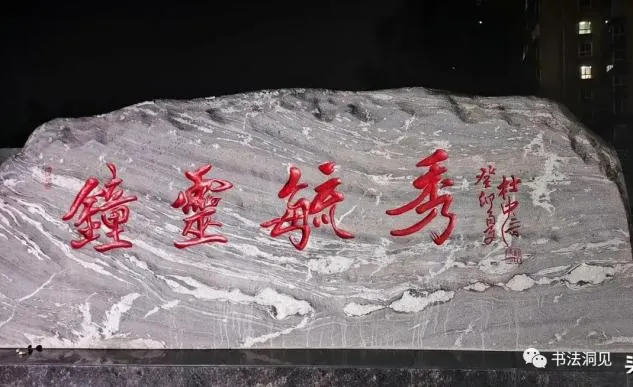 鐘靈毓秀
癸卯夏
杜中信
书法洞见